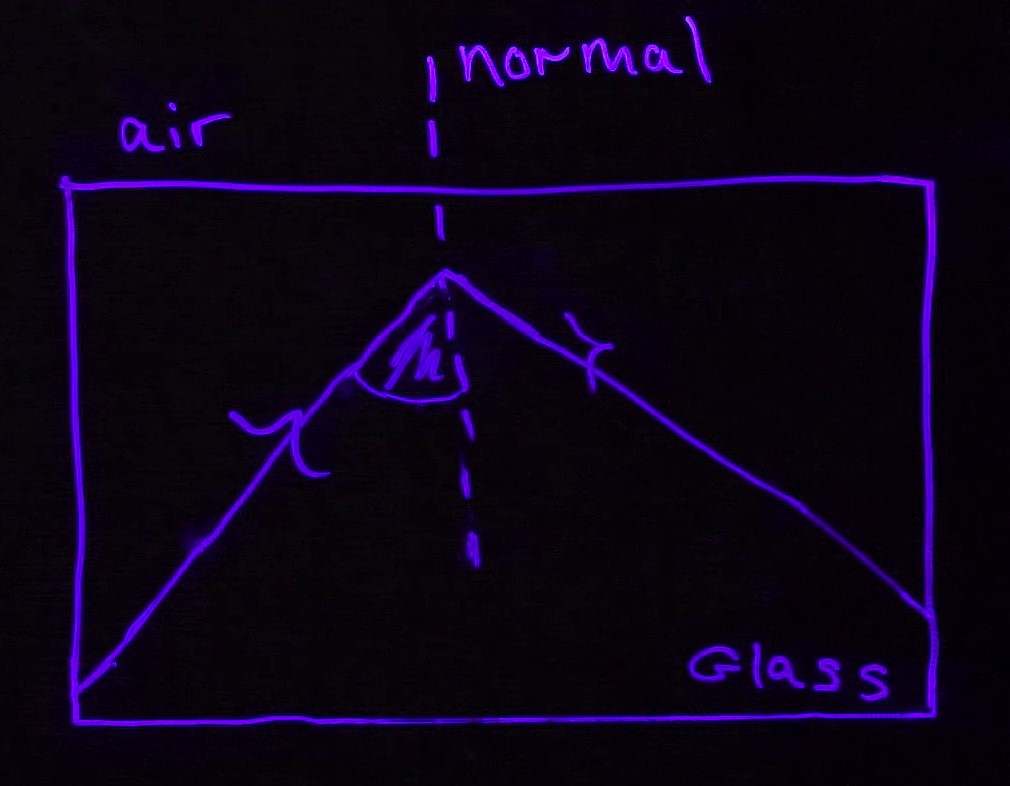 normal
air
Glass